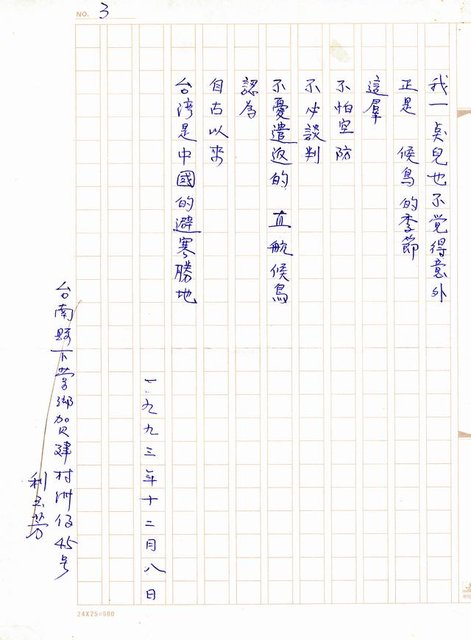 NO. 3
我一點兒也不覺得意外
正是 候鳥的季節
這羣
不怕空防
不必談判
不憂遣返的 直航候鳥
認為
自古以來
台灣是中國的避寒勝地
一九九三年十二月八日
台南縣下營鄉賀建村洲仔45号
利玉芳
24X25=600